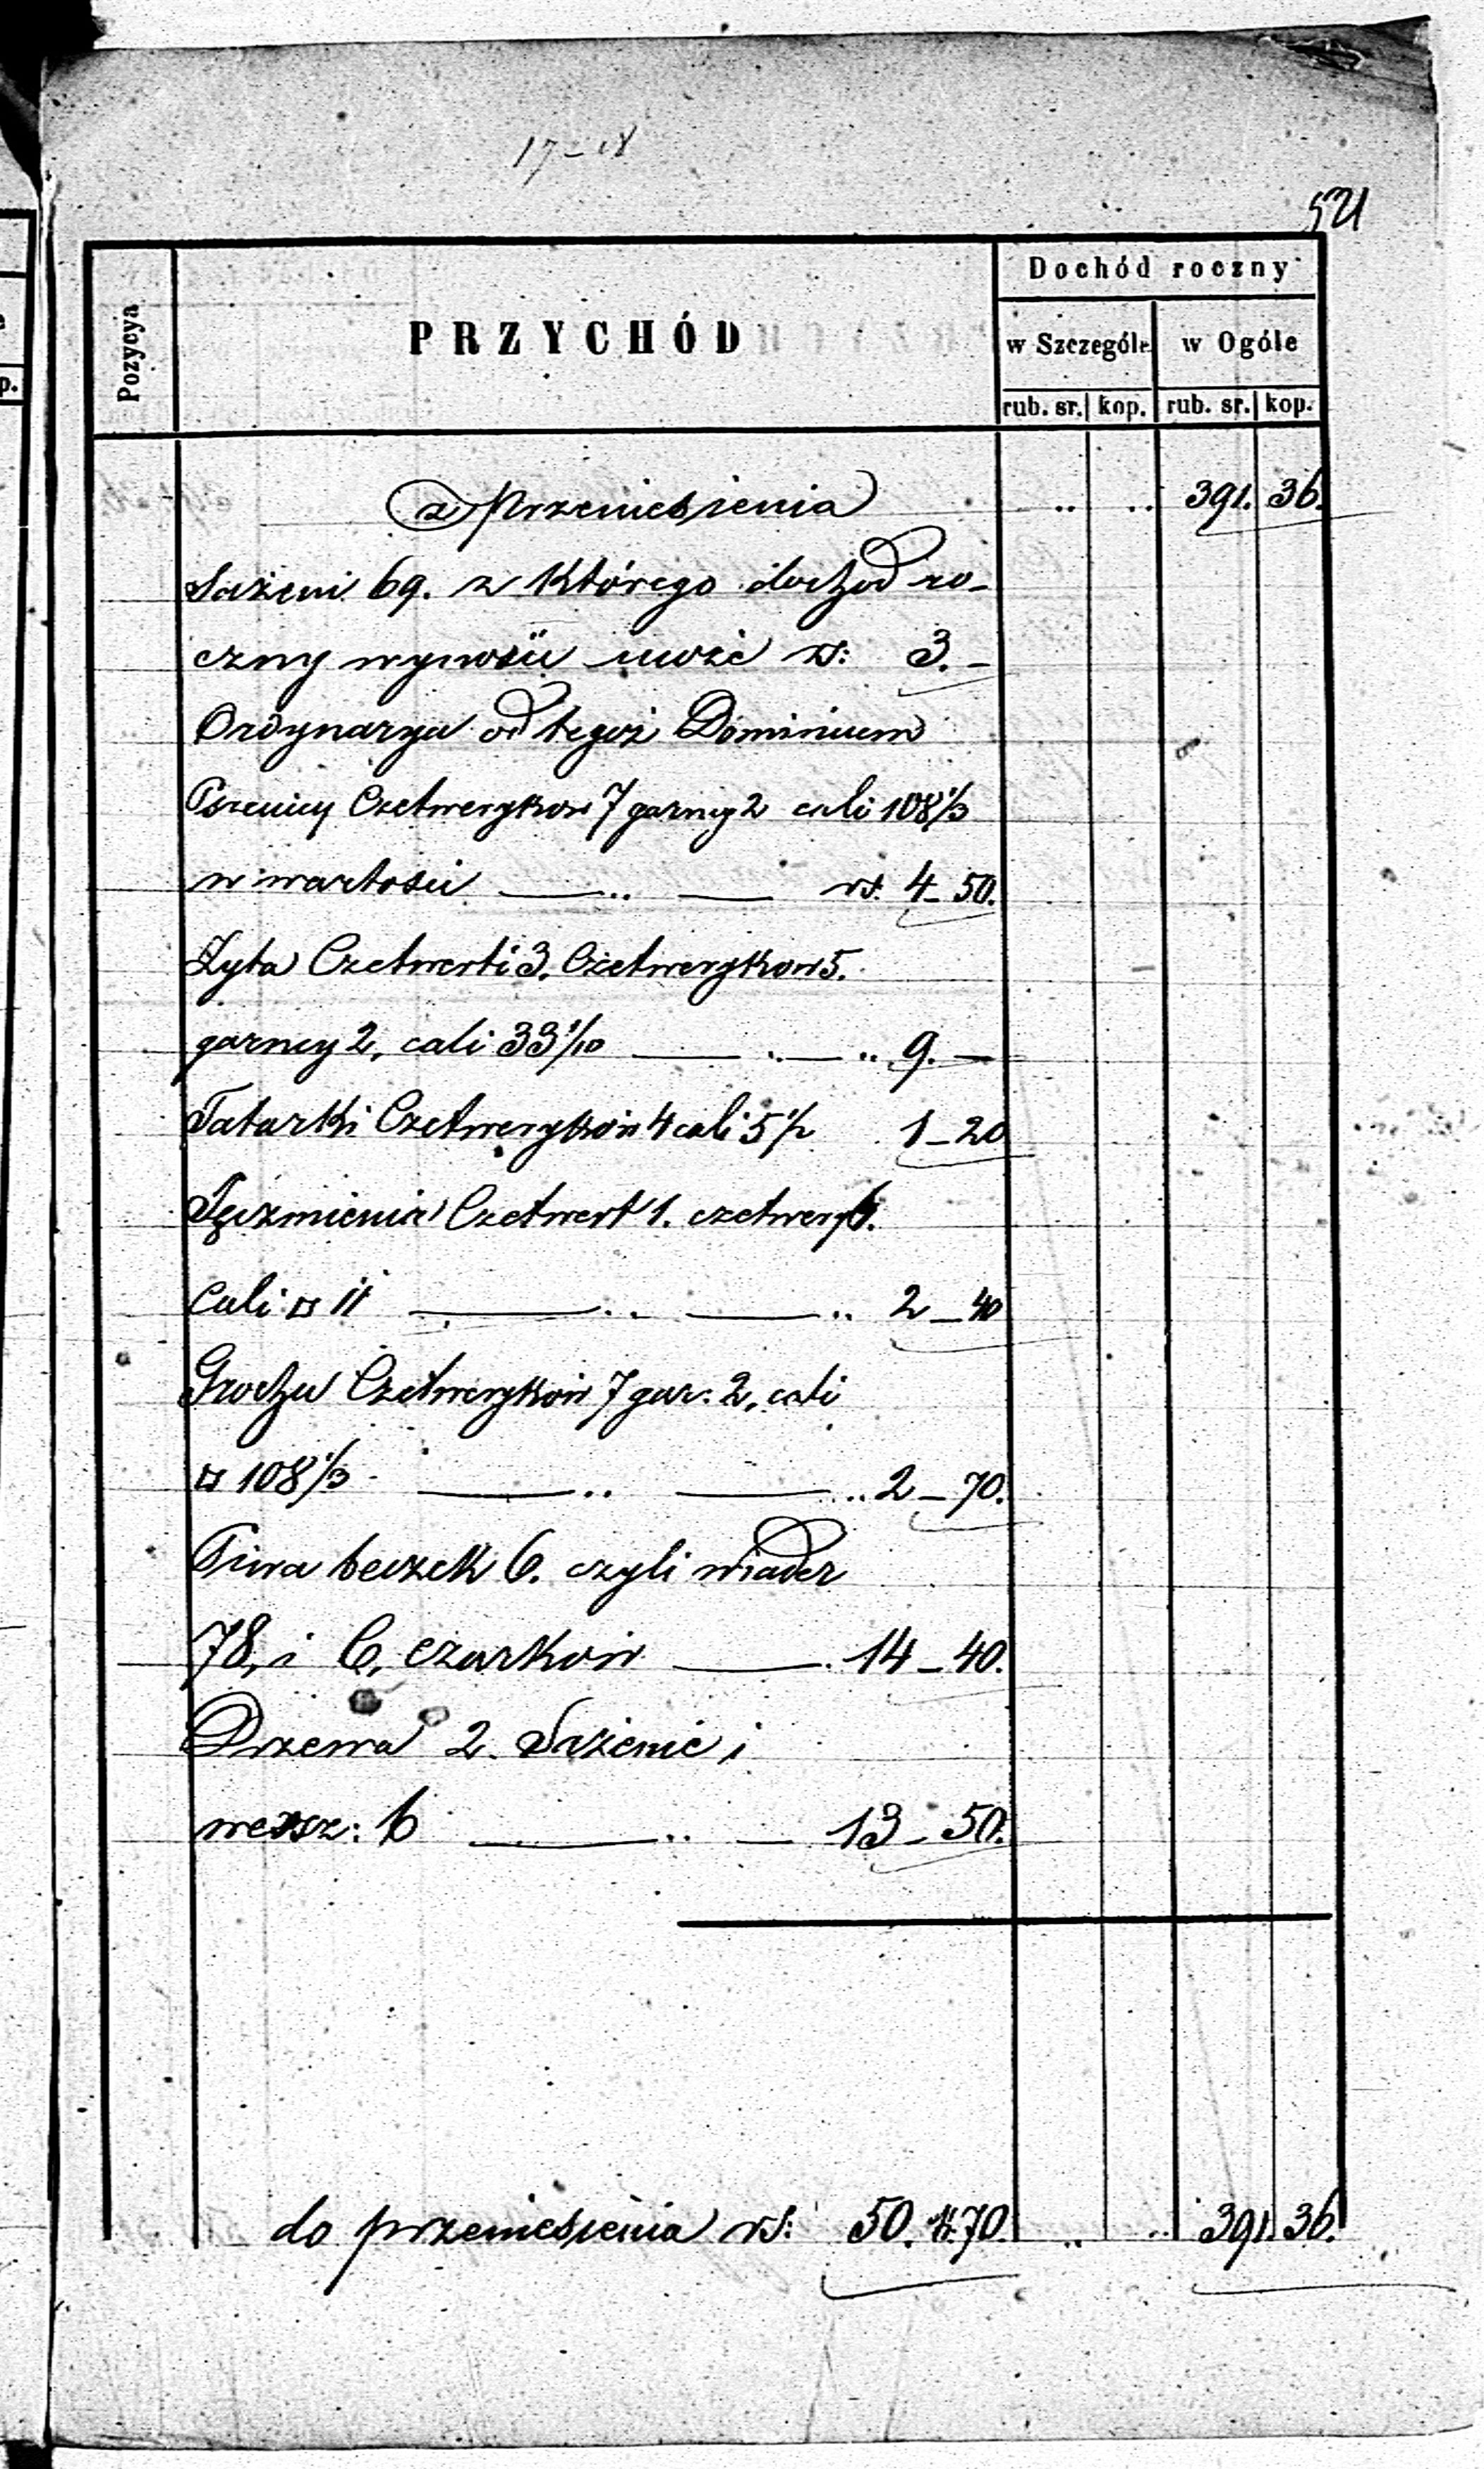 17-18
521
Pozycya
PRZYCHÓD
Dochód roczny
w Szczególe w Ogóle
rub. sr. kop. rub. sr. kop.
z Przeniesienia .. .. 391. 36.
Sażeni 69. z którego dochod ro-
czny wynosić może rs: 3.-
Ordynarya od tegoż Dominium
Pszenicy Czetwerykow 7 garncy 2 cali 108 1/3
w wartości —..— rs. 4-50.
Żyta Czetwerti 3, Czetwerykow 5.
garncy 2, cali 33 1/10 —..— .. 9.—
Tatarki Czetweryków 4 cali 5 1/2 1-20
Jęczmienia Czetwert 1. czetweryk
Cali ¤ 11 —..— .. 2-40
Grochu Czetweryków 7 gar: 2, cali
¤ 108 1/3 —..— .. 2-70.
Piwa beczek 6. czyli wiader
78, i 6, czarków — . 14-40.
Drzewa 2. Sażenie i
wersz: 6 —..— 13-50.
do przeniesienia rs: 50. 70. .. .. 391. 36.
e
p.